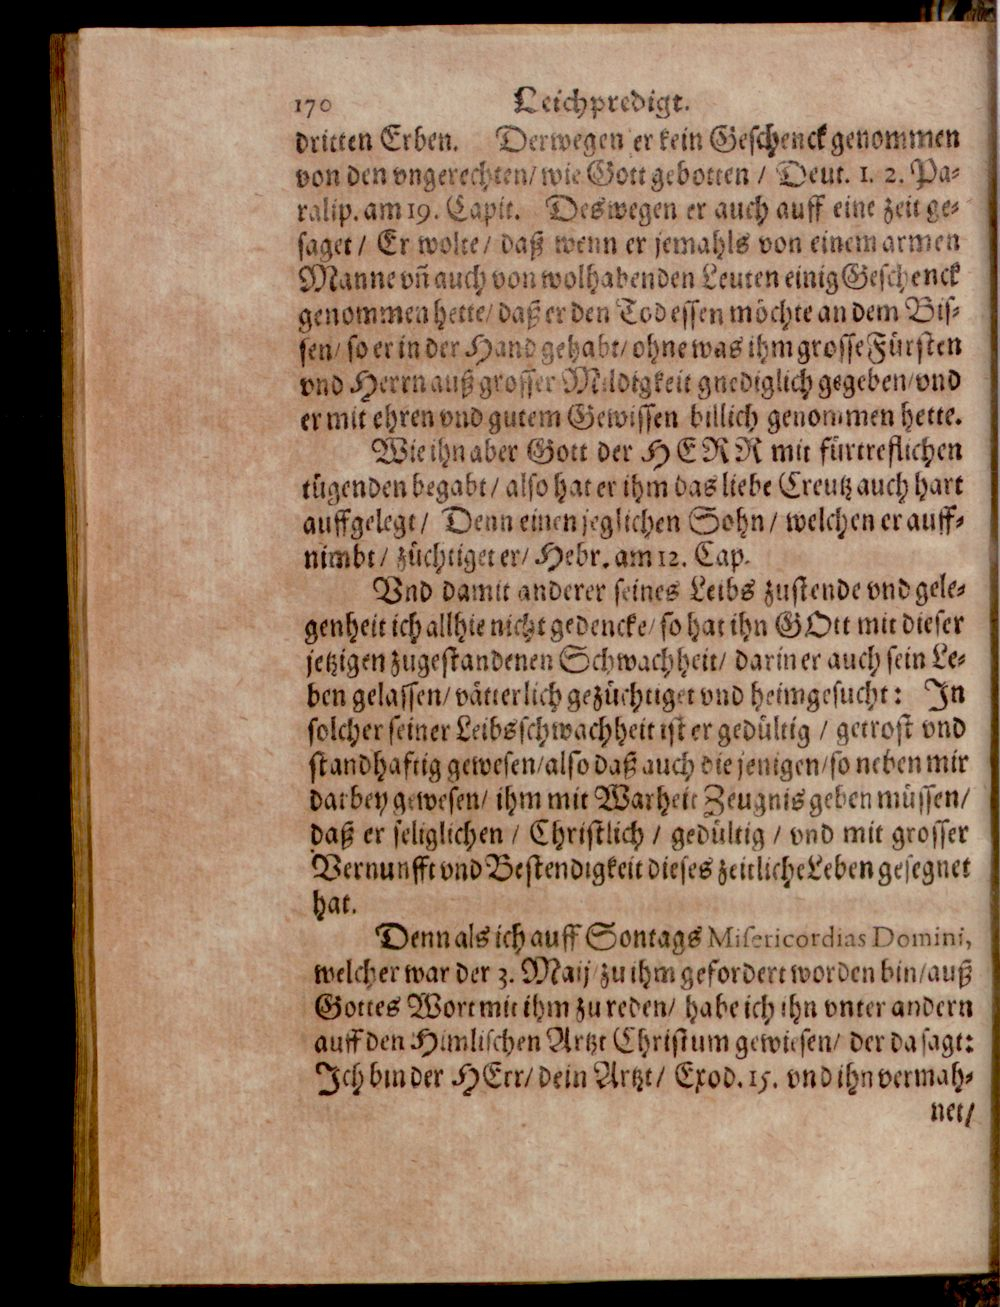 170 Leichpredigt.
dritten Erben. Derwegen er kein Geschenck genommen
von den vngerechten/ wie Gott gebotten / Deut. 1. 2. Pa-
ralip. am 19. Capit. Deswegen er auch auff eine zeit ge-
saget / Er wolte / daß wenn er jemahls von einem armen
Manne vñ auch von wolhabenden Leuten einig Geschenck
genommen hette/ daß er den Tod essen möchte an dem Bis-
sen/ so er in der Hand gehabt/ ohne was ihm grosse Fürsten
vnd Herrn auß grosser Mildigkeit gnediglich gegeben/ vnd
er mit ehren vnd gutem Gewissen billich genommen hette.
Wie ihn aber Gott der HERR mit fürtreflichen
tügenden begabt / also hat er ihm das liebe Creutz auch hart
auffgelegt / Denn einen jeglichen Sohn / welchen er auff-
nimbt / züchtiget er/ Hebr. am 12. Cap.
Vnd damit anderer seines Leibs zustende vnd gele-
genheit ich allhie nicht gedencke/ so hat ihn GOtt mit dieser
jetzigen zugestandenen Schwachheit/ darin er auch sein Le-
ben gelassen/ vätterlich gezüchtiget vnd heimgesucht: In
solcher seiner Leibsschwachheit ist er gedültig / getrost vnd
standhafftig gewesen/ also daß auch die jenigen/ so neben mir
darbey gewesen/ ihm mit Warheit Zeugnis geben müssen/
daß er seliglichen / Christlich / gedültig / vnd mit grosser
Vernunfft vnd Bestendigkeit dieses zeitliche Leben gesegnet
hat.
Denn als ich auff Sontags Misericordias Domini,
welcher war der 3. Maij zu ihm gefordert worden bin/ auß
Gottes Wort mit ihm zu reden/ habe ich ihn vnter andern
auff den Himlischen Artzt Christum gewiesen/ der da sagt:
Ich bin der HErr/ dein Artzt/ Exod. 15. vnd ihn vermah-
net/